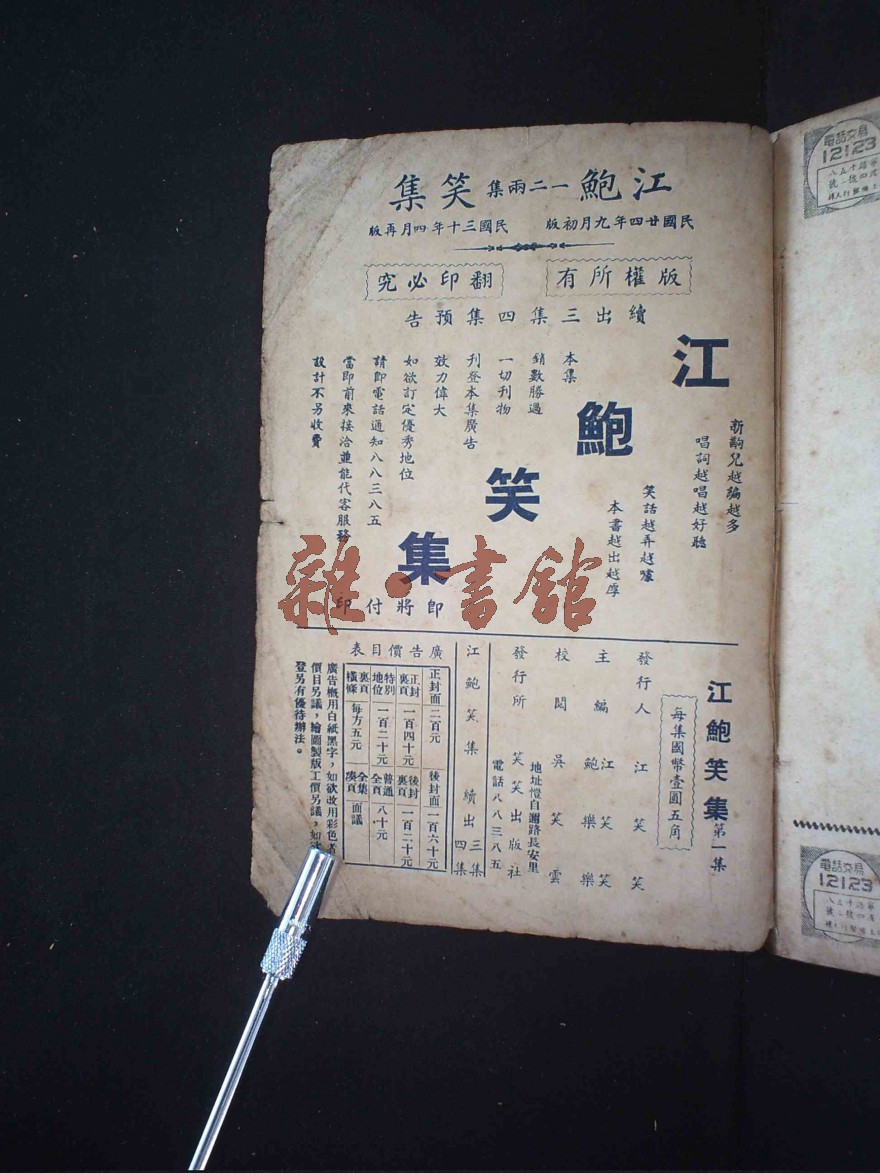 江鮑一二兩集笑集
民國廿四年九月初版
民國三十年四月再版
版權所有
翻印必究
續出三集四集預告
江鮑笑集
新齣兒越編越多
唱詞越唱越好聽
笑話越弄越噱
本書越出越厚
本集
銷數勝過
一切刊物
刊登本集廣告
效力偉大
如欲訂定優秀地位
請即電話通知八八三八五
當即前來接洽並能代客服務
設計不另收費
即將付印
雜·書館
江鮑笑集第一集
每集國幣壹圓五角
發行人 江笑笑
主編 江笑笑
鮑樂樂
校閱 吳笑雲
地址愷自邇路長安里
發行所 笑笑出版社
電話八八三八五
江鮑笑集續出三集四集
廣告價目表
正封面 二百元
後封面 一百六十元
正封裏頁 一百四十元
後封裏頁 一百二十元
特別地位 一百二十元
普通全頁 八十元
裏頁橫條 每方五元
全集湊頁 面議
廣告概用白紙黑字，如欲改用彩色者
價目另議，繪圖製版工價另議，如
登另有優待辦法。
電話交易
12123
電話交易
12123